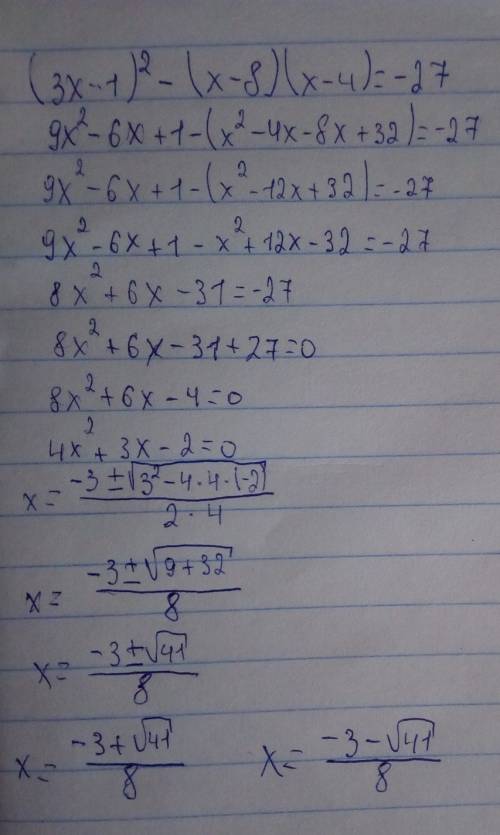 (3x-1)² - (x-8)(x-4) = -27
9x² - 6x + 1 - (x² - 4x - 8x + 32) = -27
9x² - 6x + 1 - (x² - 12x + 32) = -27
9x² - 6x + 1 - x² + 12x - 32 = -27
8x² + 6x - 31 = -27
8x² + 6x - 31 + 27 = 0
8x² + 6x - 4 = 0
4x² + 3x - 2 = 0
x = (-3 ± √(3² - 4·4·(-2)))/(2·4)
x = (-3 ± √(9+32))/8
x = (-3 ± √41)/8
x = (-3 + √41)/8 x = (-3 - √41)/8